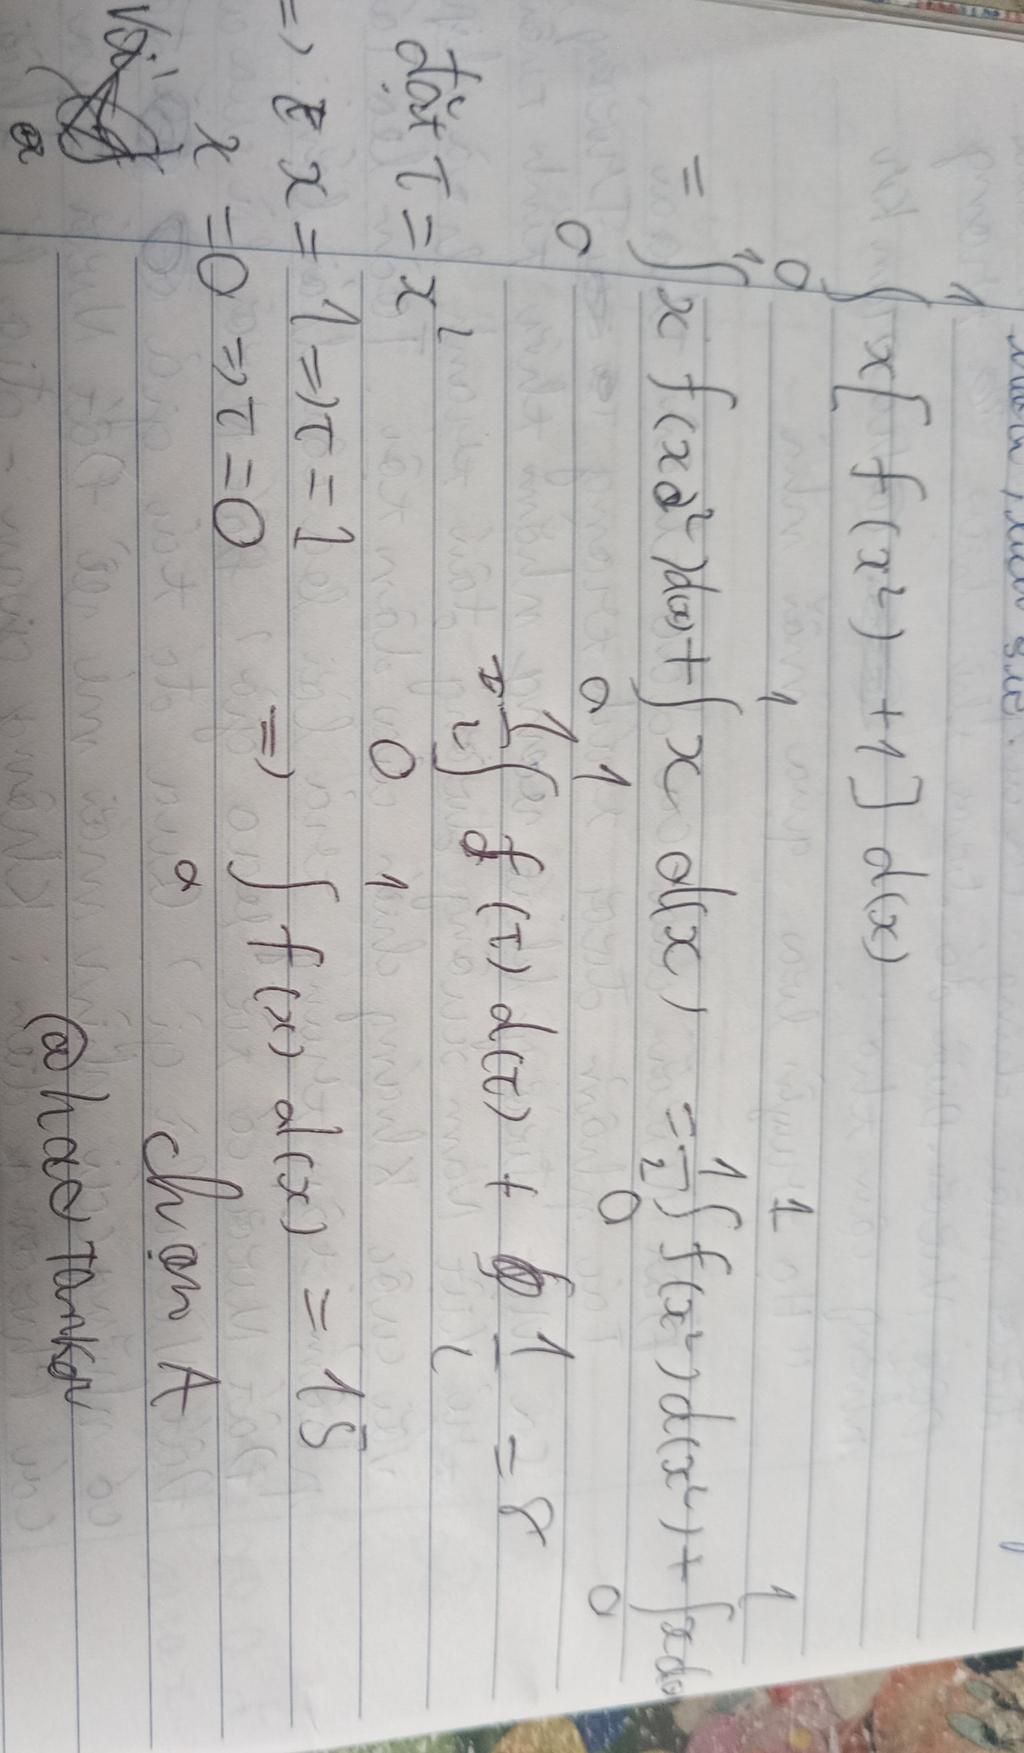 ∫₀¹ x[f(x²) + 1] d(x)
= ∫₀¹ x f(x²)d(x) + ∫₀¹ x d(x) = 1/2 ∫₀¹ f(x²)d(x²) + ∫₀¹ xd(x)
1/2 ∫₀¹ f(τ)d(τ) + 1/2 = 8
đặt τ = x²
=> x = 1 => τ = 1
x = 0 => τ = 0 => ∫₀¹ f(x) d(x) = 15
Với
chọn A
@haotanka